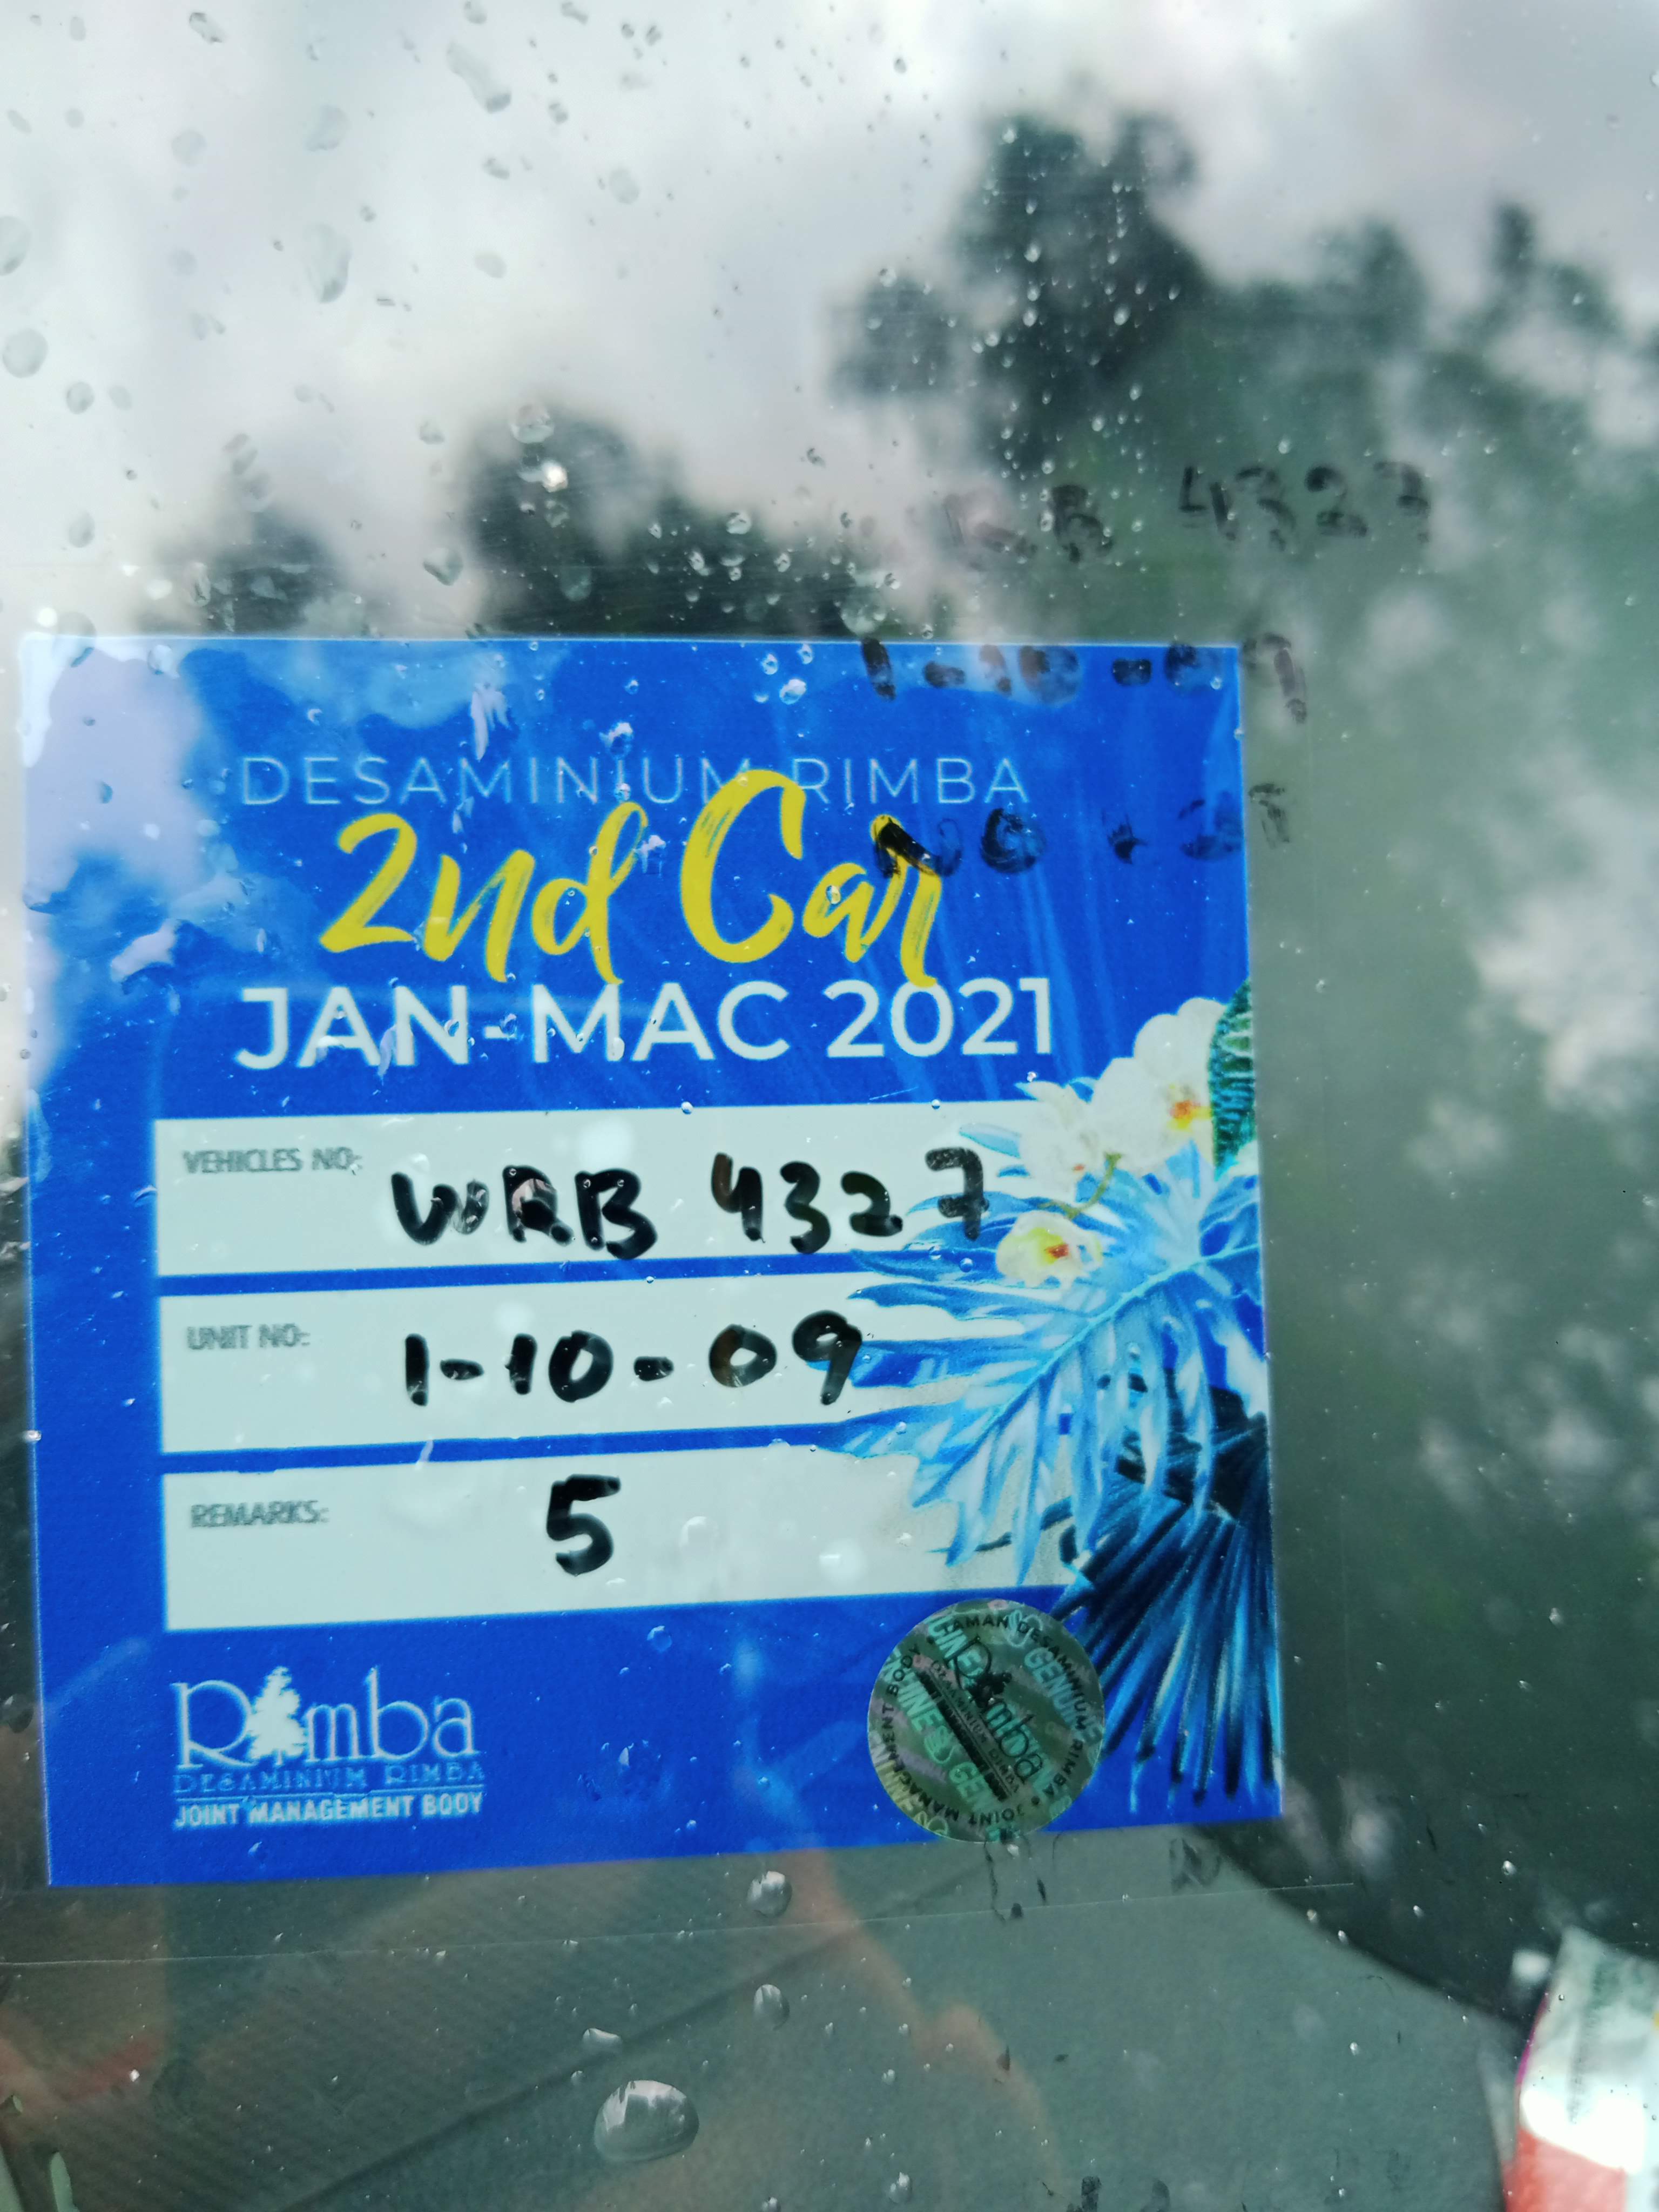 B 4327
1-10-09
DESAMINIUM RIMBA
2nd Car
JAN-MAC 2021
VEHICLES NO:
WRB 4327
UNIT NO:
1-10-09
REMARKS:
5
Rimba
DESAMINIUM RIMBA
JOINT MANAGEMENT BODY
TAMAN DESAMINIUM RIMBA • JOINT MANAGEMENT BODY •
Rimba